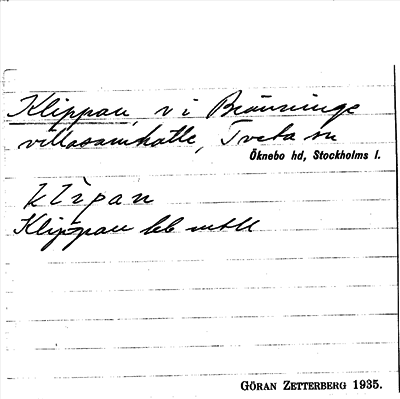 Klippan, v i Bränninge
villasamhälle, Tveta sn
Öknebo hd, Stockholms l.
klìpan
Klippan kb mtll
GÖRAN ZETTERBERG 1935.